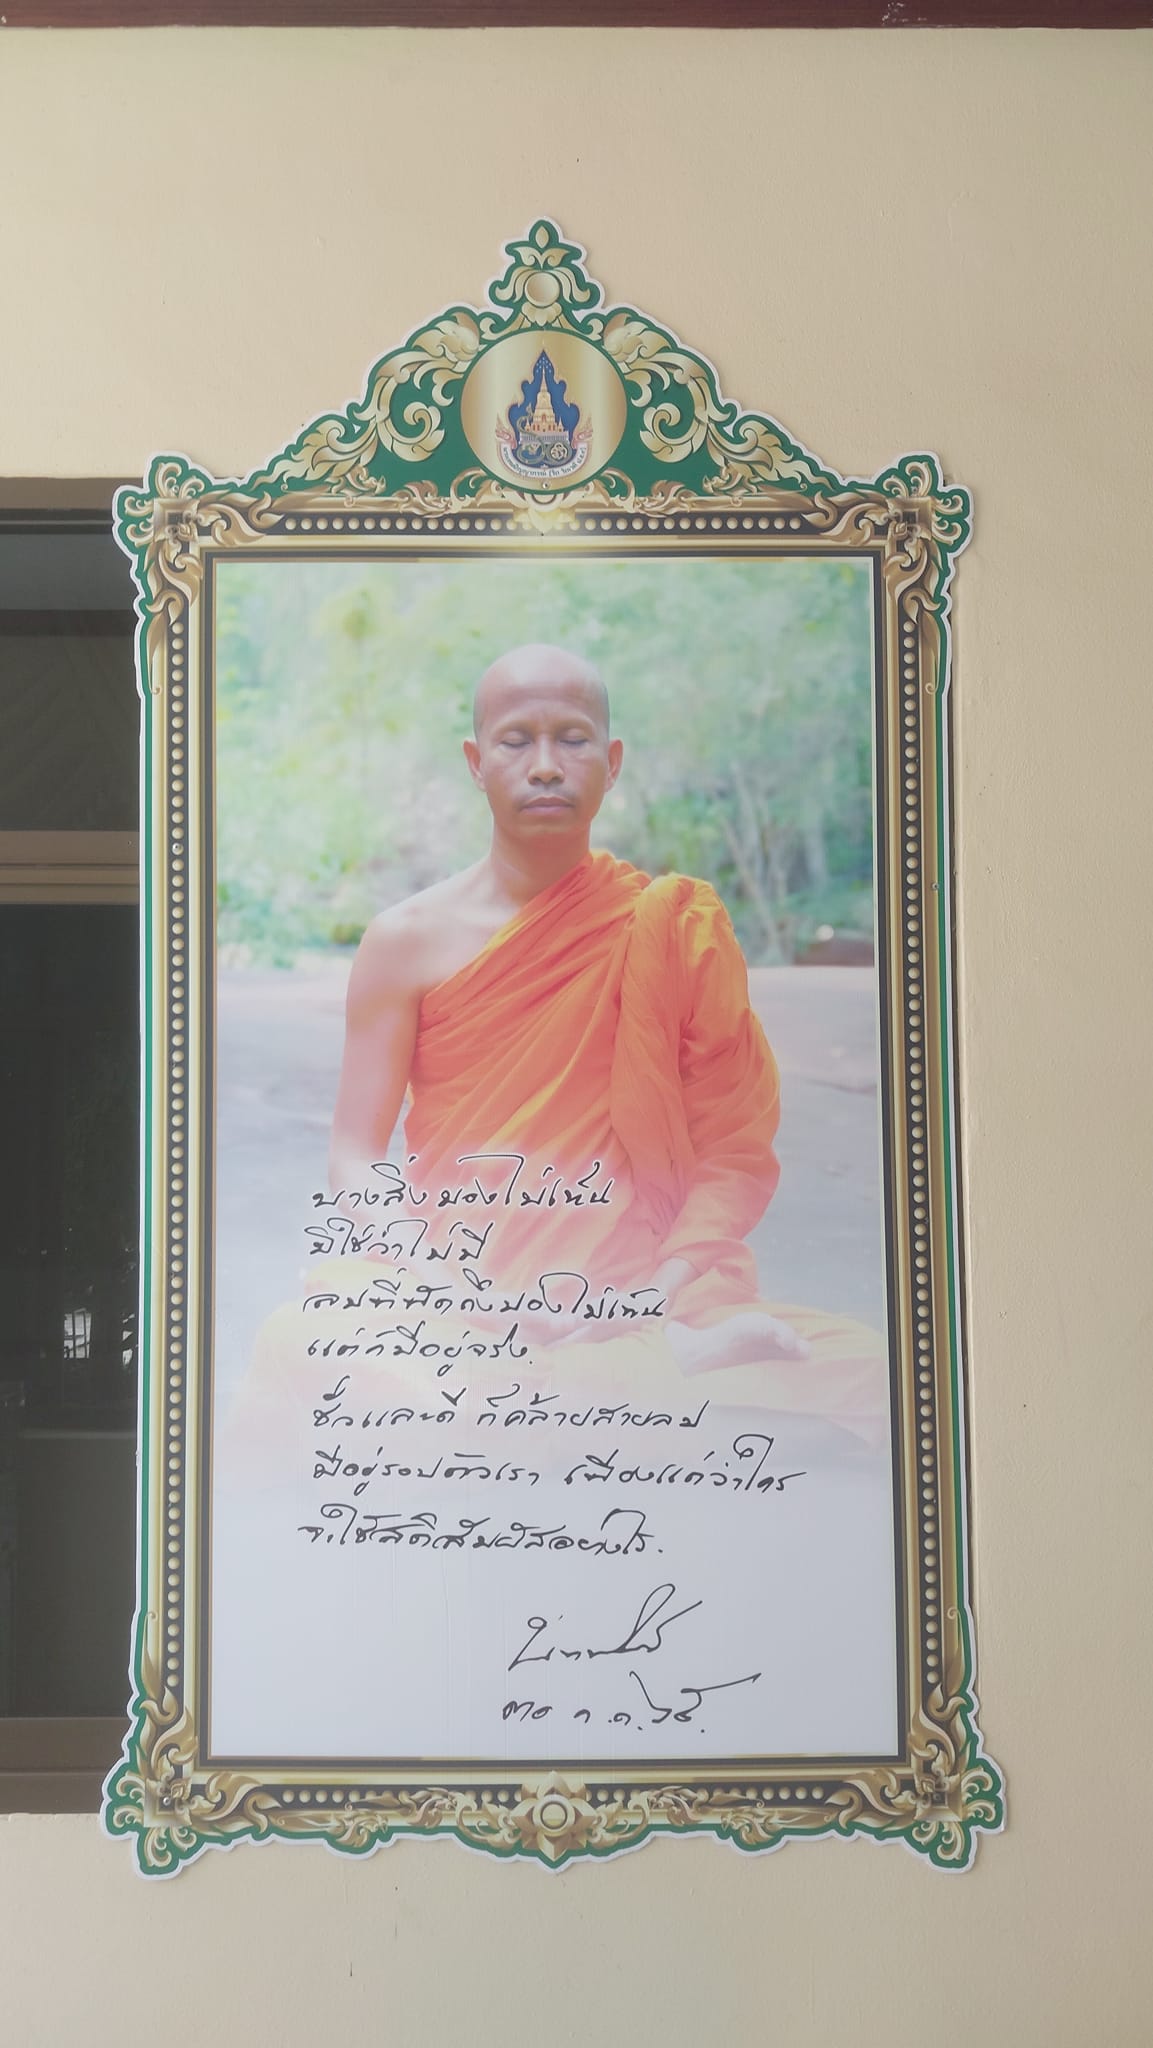 บางสิ่งมองไม่เห็น
มิใช่ว่าไม่มี
ลมที่พัดถึงมองไม่เห็น
แต่ก็มีอยู่จริง.
ชั่วและดี ก็คล้ายสายลม
มีอยู่รอบตัวเรา เพียงแต่ว่าใคร
จะใช้สติสัมผัสอย่างไร.
๓๐ ก.ค.